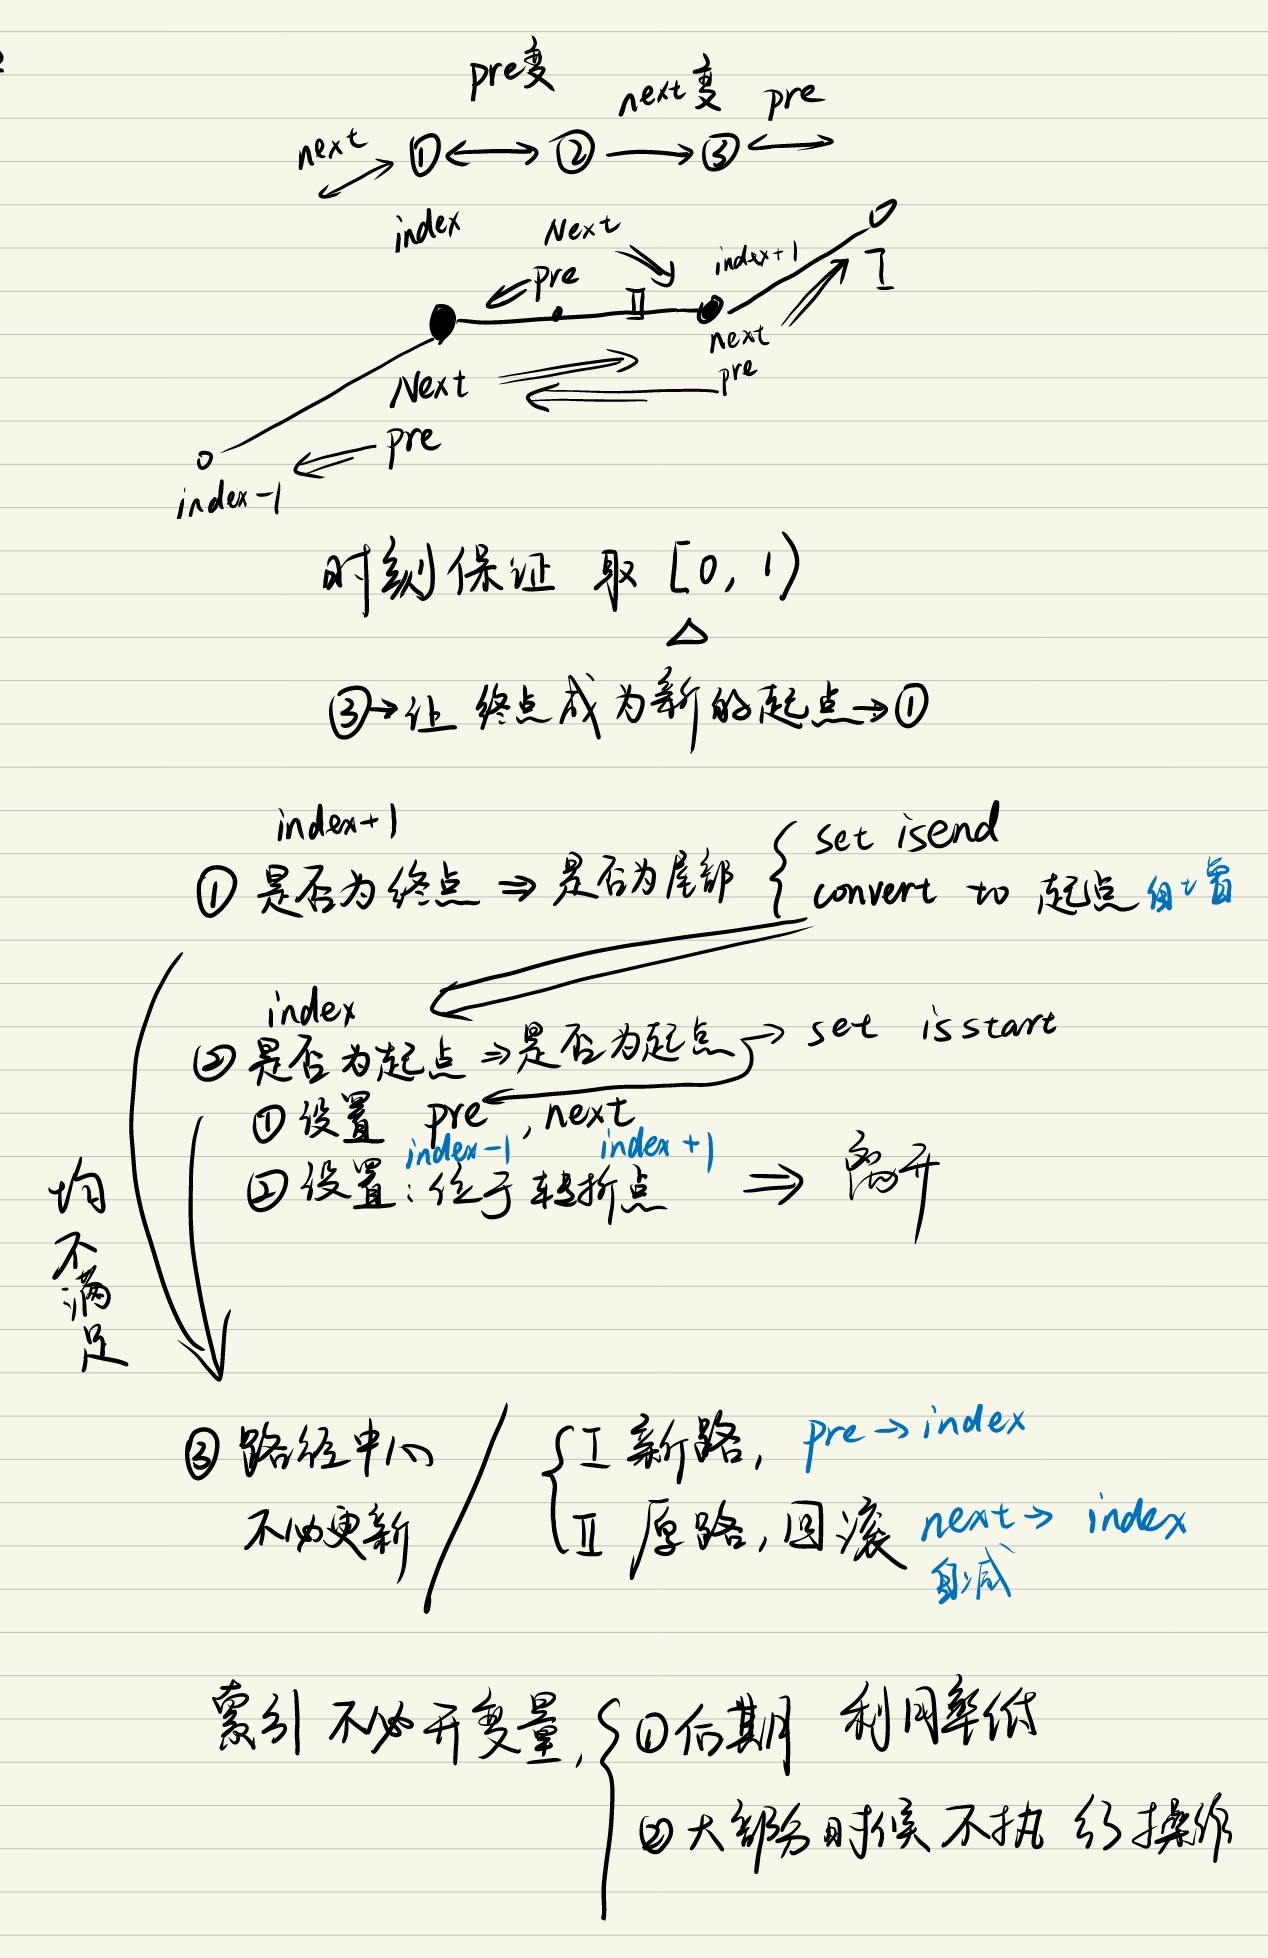 pre变
next变 pre
next ①↔②→③
index Next index+1 I
pre II
next
Next pre
pre
index-1
时刻保证 取 [0, 1)
△
③→让 终点成为新的起点→①
index+1
①是否为终点 ⇒ 是否为尾部 { set isend
convert to 起点 自增
index
②是否为起点 ⇒ 是否为起点 → set isstart
①设置 pre, next
index-1 index+1
②设置:位于转折点 ⇒ 离开
均不满足
③路径中心 / { I 新路, pre→index
不必更新 II 原路,回滚 next→ index
自减
索引 不必开变量, { ①后期 利用率低
②大部分时候 不执行操作